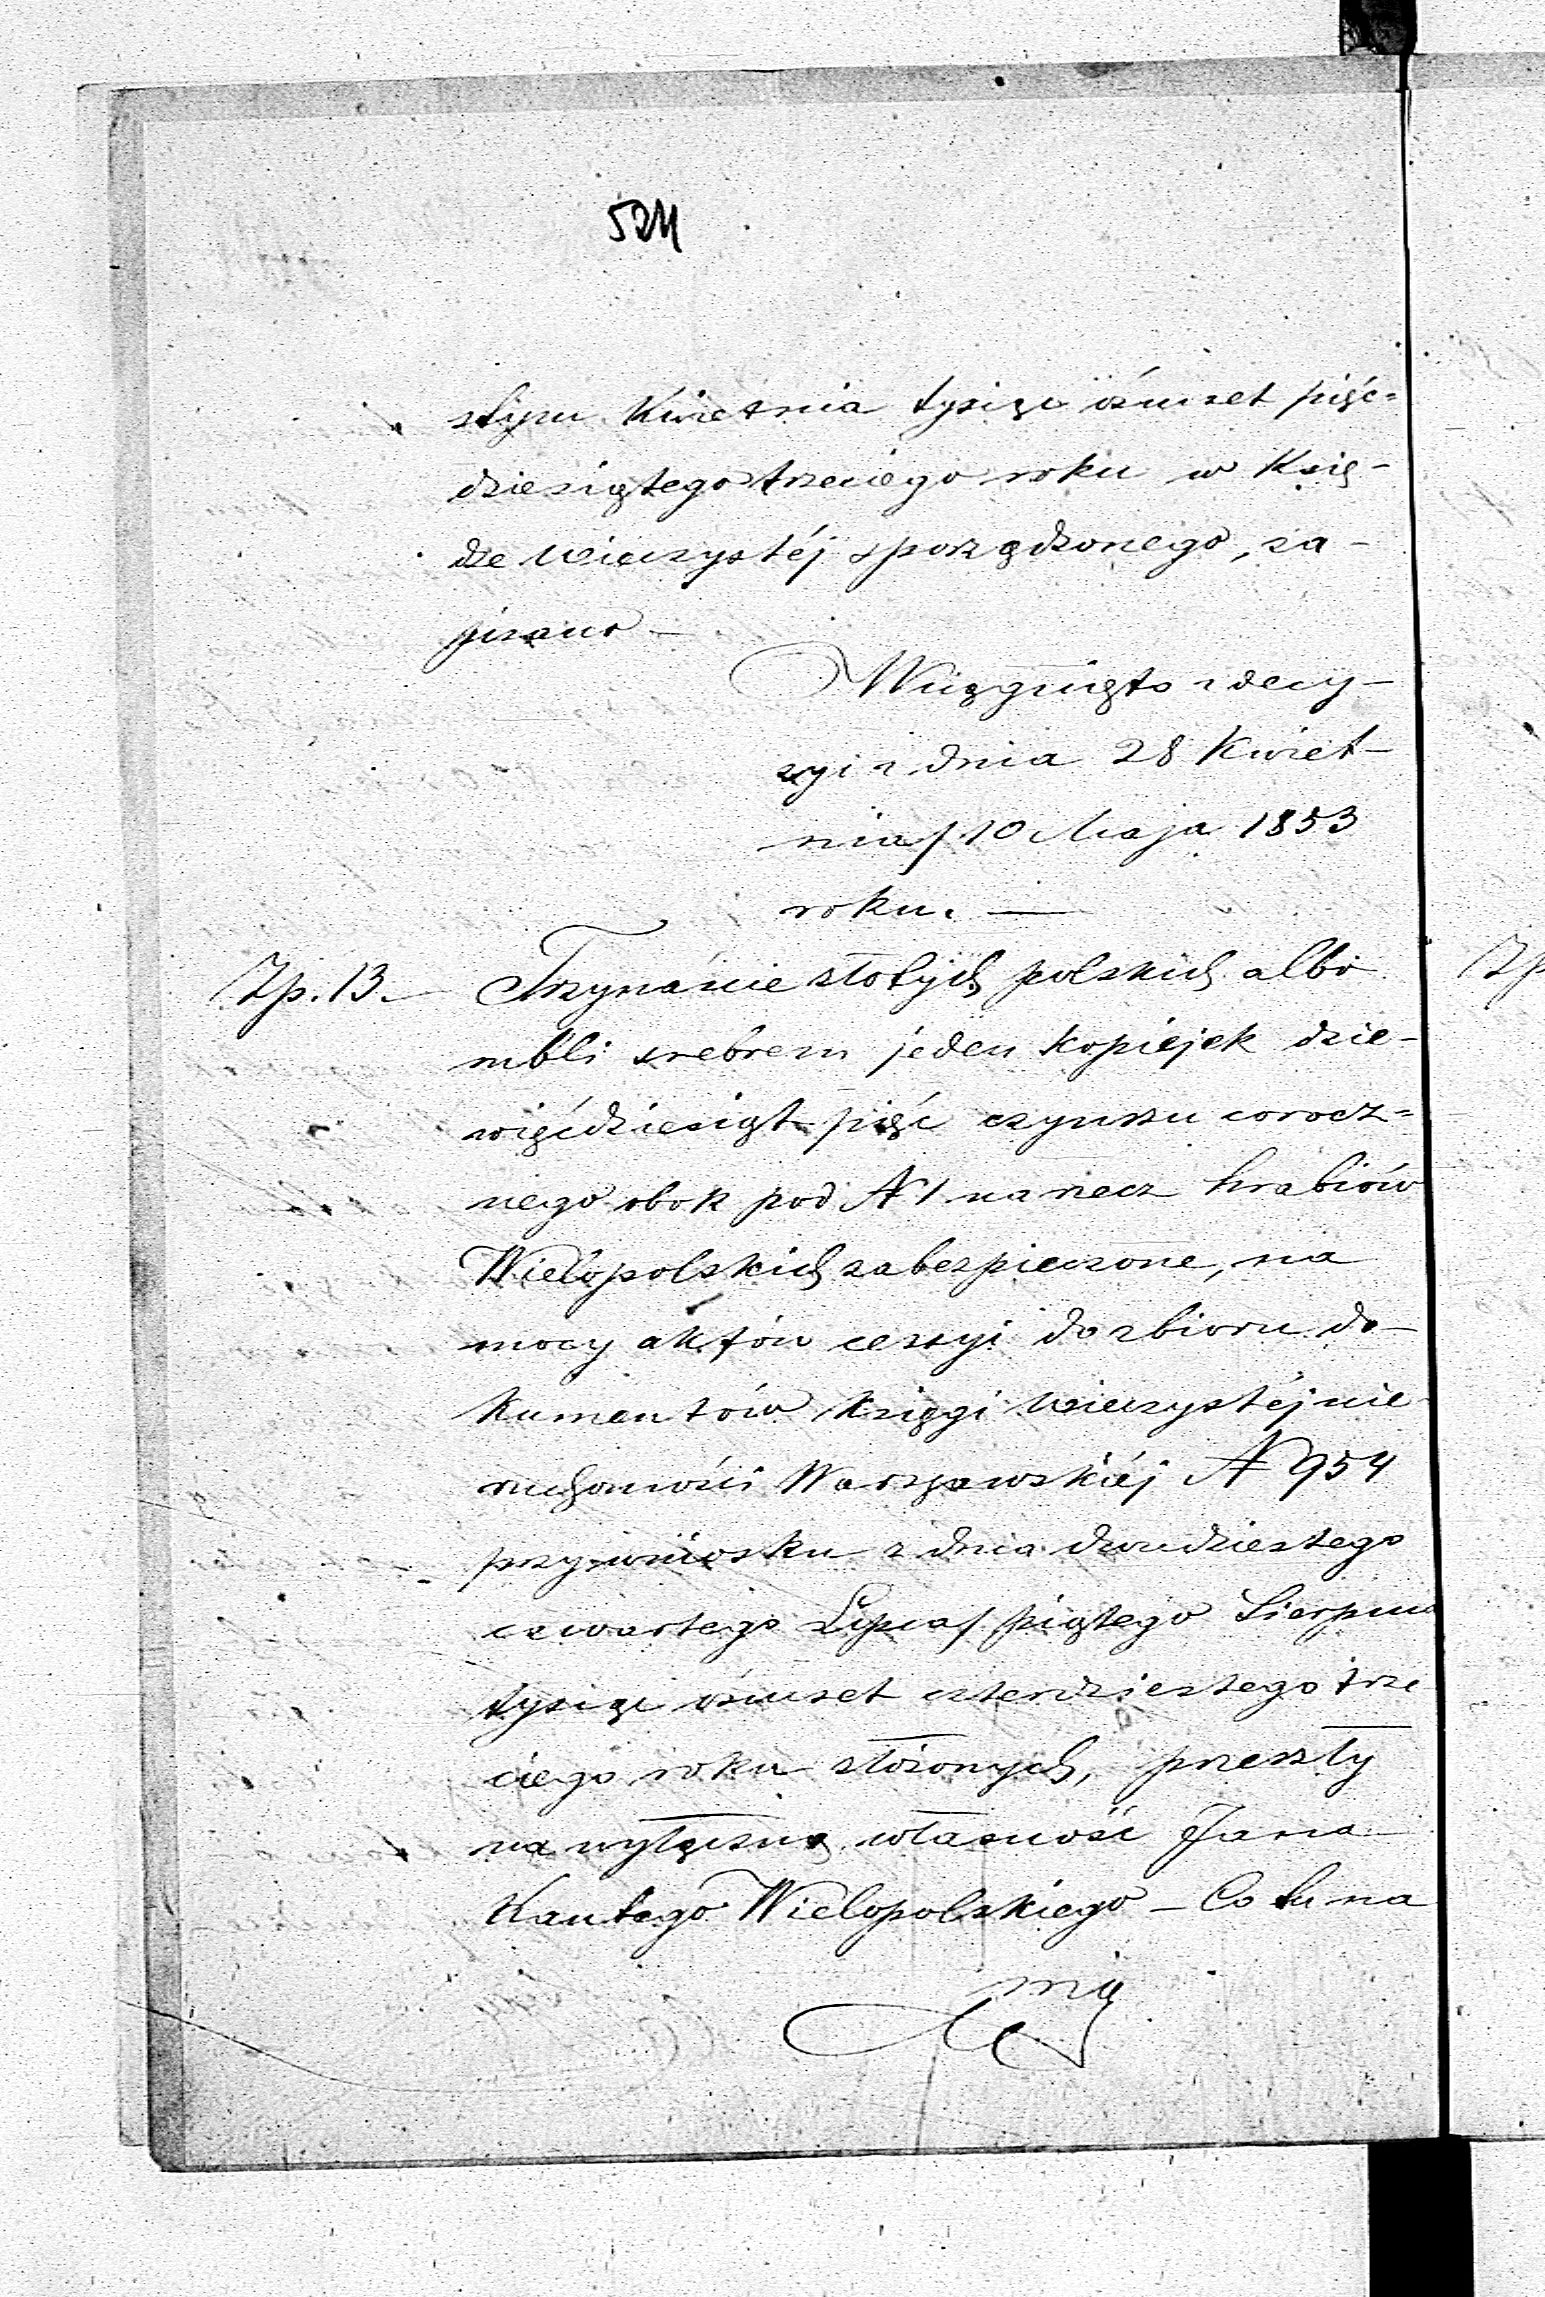 524
stym Kwietnia tysiąc ośmset pięć=
dziesiątego trzeciego roku w Księ-
dze wieczystéj sporządzonego, za-
pisano —
Wciągnięto z decy-
zyi z dnia 28 Kwiet-
nia / 10 Maja 1853
roku. —
Zp. 13. — Trzynaście złotych polskich albo
rubli srebrem jeden kopiejek dzie-
więćdziesiąt pięć czynszu corocz=
nego obok pod N 1 na rzecz hrabiów
Wielopolskich zabezpieczone, na
mocy aktów cessyi do zbioru do-
kumentów księgi wieczystéj nie
ruchomości Warszawskiéj N 954
przy wniosku z dnia dwudziestego
czwartego Lipca / piątego Sierpnia
tysiąc ośmset czterdziestego trze
ciego roku złożonych, przeszły
na wyłączną własność Jana
Kantego Wielopolskiego — Co tu na
mią